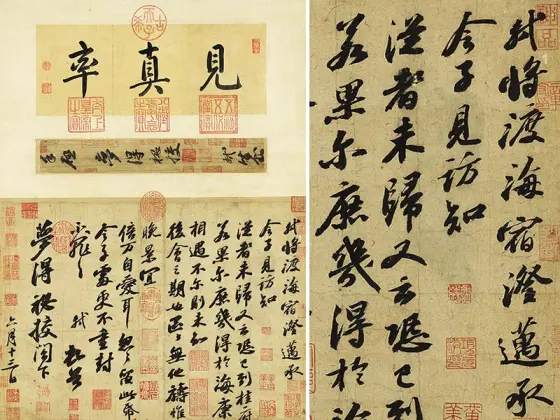 見真率
手啟 夢得祕校 軾封
軾將渡海宿澄邁承
令子見訪知
從者未歸又云恐已到桂府
若果爾庶幾得於海康
相遇不爾則未知
後會之期也區區無他禱惟
晚景宜
倍萬自愛耳怱怱留此帋
令子處更不重封不罪
不罪 軾 頓首
夢得祕校閣下
六月十三日
軾將渡海宿澄邁承
令子見訪知
從者未歸又云恐已到
若果爾庶幾得於